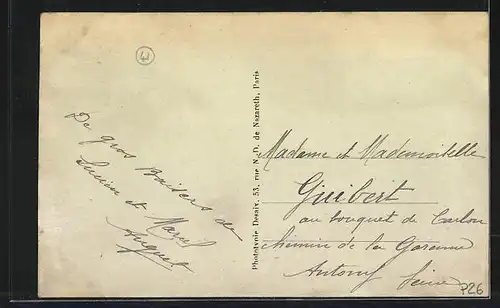 41
De gros Baisers de
Lucien et Marcel
Auguste
Phototypie Desaix, 53, rue N.-D. de Nazareth, Paris
Madame et Mademoiselle
Guibert
au bouquet de
chemin de la Garenne
Antony Seine
P26